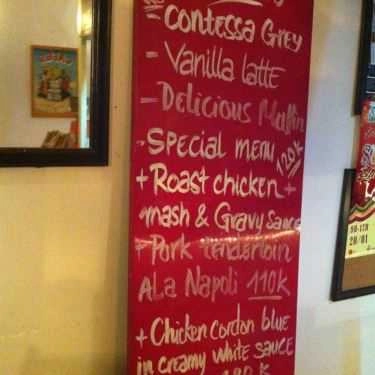 - Contessa Grey
- Vanilla latte
- Delicious Muffin
- Special menu
+ Roast chicken +
mash & Gravy sauce
120K
+ Pork tenderloin
A La Napoli 110K
+ Chicken cordon blue
in creamy white sauce
20/01